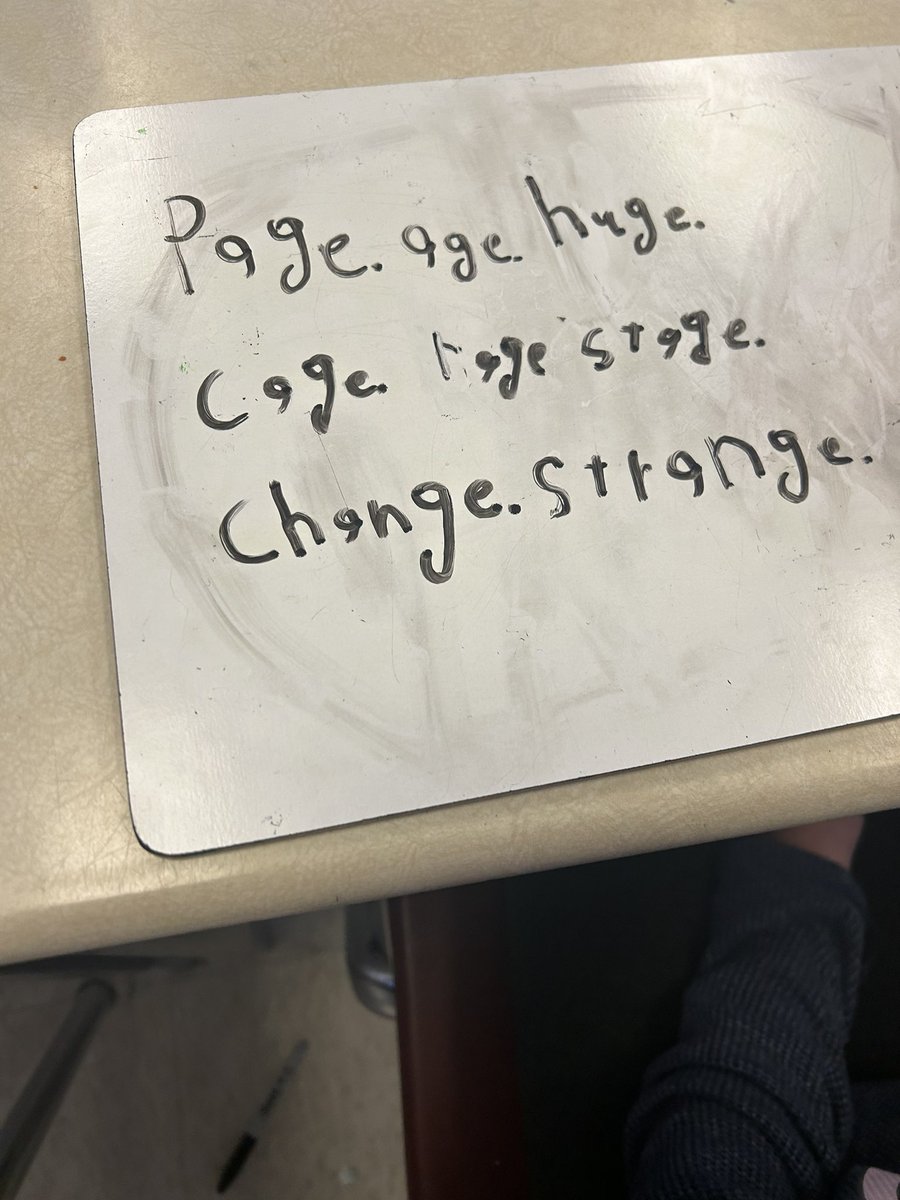 Page. age. huge.
Cage. rage stage.
Change. strange.